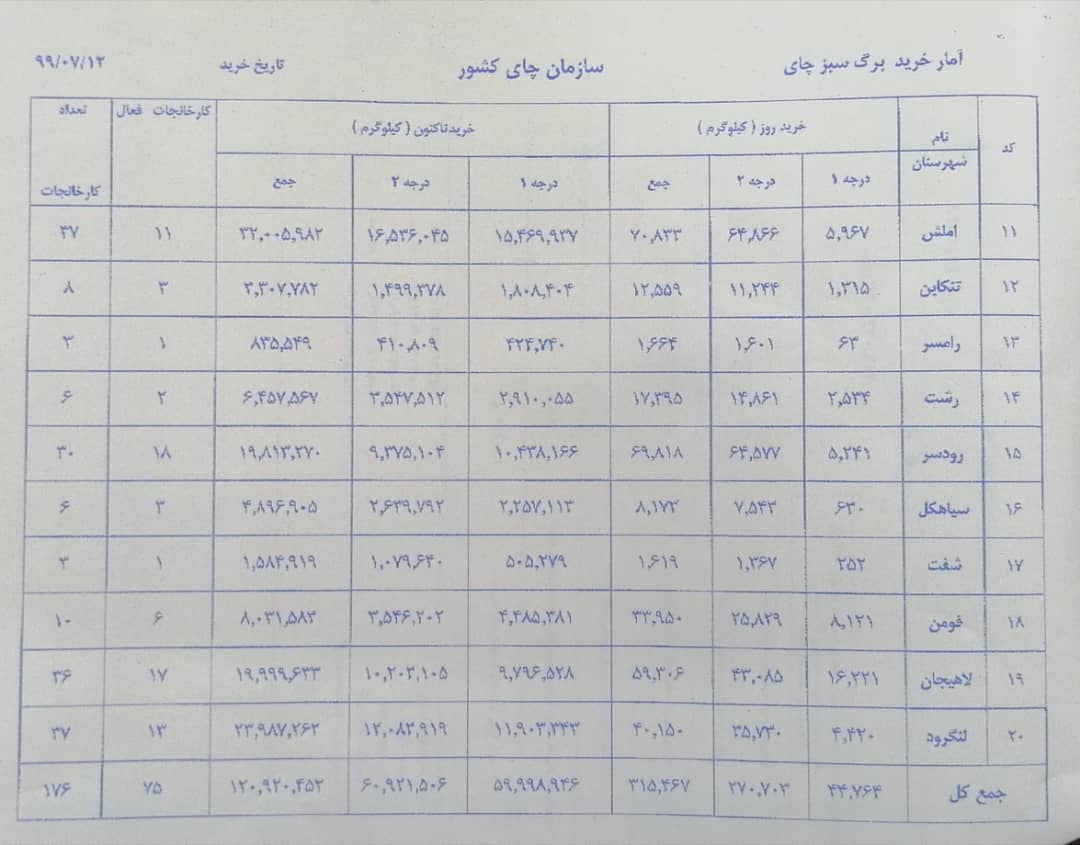 آمار خرید برگ سبز چای سازمان چای کشور تاریخ خرید ۹۹/۰۷/۱۲
کد نام شهرستان خرید روز ( کیلوگرم ) خریدتاکنون ( کیلوگرم ) کارخانجات فعال تعداد کارخانجات
درجه ۱ درجه ۲ جمع درجه ۱ درجه ۲ جمع
۱۱ املش ۵,۹۶۷ ۶۴,۸۶۶ ۷۰,۸۳۳ ۱۵,۴۶۹,۹۳۷ ۱۶,۵۳۶,۰۴۵ ۳۲,۰۰۵,۹۸۲ ۱۱ ۳۷
۱۲ تنکابن ۱,۳۱۵ ۱۱,۲۴۴ ۱۲,۵۵۹ ۱,۸۰۸,۴۰۴ ۱,۴۹۹,۳۷۸ ۳,۳۰۷,۷۸۲ ۳ ۸
۱۳ رامسر ۶۳ ۱,۶۰۱ ۱,۶۶۴ ۴۲۴,۷۴۰ ۴۱۰,۸۰۹ ۸۳۵,۵۴۹ ۱ ۳
۱۴ رشت ۲,۵۳۴ ۱۴,۸۶۱ ۱۷,۳۹۵ ۲,۹۱۰,۰۵۵ ۳,۵۴۷,۵۱۲ ۶,۴۵۷,۵۶۷ ۲ ۶
۱۵ رودسر ۵,۲۴۱ ۶۴,۵۷۷ ۶۹,۸۱۸ ۱۰,۴۳۸,۱۶۶ ۹,۳۷۵,۱۰۴ ۱۹,۸۱۳,۲۷۰ ۱۸ ۳۰
۱۶ سیاهکل ۶۳۰ ۷,۵۴۳ ۸,۱۷۳ ۲,۲۵۷,۱۱۳ ۲,۶۳۹,۷۹۲ ۴,۸۹۶,۹۰۵ ۳ ۶
۱۷ شفت ۲۵۲ ۱,۳۶۷ ۱,۶۱۹ ۵۰۵,۲۷۹ ۱,۰۷۹,۶۴۰ ۱,۵۸۴,۹۱۹ ۱ ۳
۱۸ فومن ۸,۱۲۱ ۲۵,۸۲۹ ۳۳,۹۵۰ ۴,۴۸۵,۳۸۱ ۳,۵۴۶,۲۰۲ ۸,۰۳۱,۵۸۳ ۶ ۱۰
۱۹ لاهیجان ۱۶,۲۲۱ ۴۳,۰۸۵ ۵۹,۳۰۶ ۹,۷۹۶,۵۲۸ ۱۰,۲۰۳,۱۰۵ ۱۹,۹۹۹,۶۳۳ ۱۷ ۳۶
۲۰ لنگرود ۴,۴۲۰ ۳۵,۷۳۰ ۴۰,۱۵۰ ۱۱,۹۰۳,۳۴۳ ۱۲,۰۸۳,۹۱۹ ۲۳,۹۸۷,۲۶۲ ۱۳ ۳۷
جمع کل ۴۴,۷۶۴ ۲۷۰,۷۰۳ ۳۱۵,۴۶۷ ۵۹,۹۹۸,۹۴۶ ۶۰,۹۲۱,۵۰۶ ۱۲۰,۹۲۰,۴۵۲ ۷۵ ۱۷۶